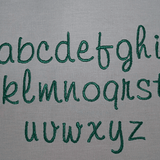 abcdefghi
klmnopqrst
uvwxyz